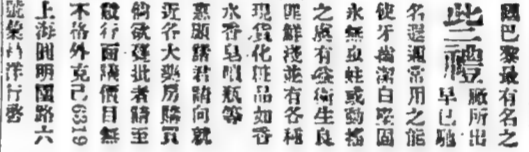 國巴黎最有名之
廠所出
此二種
早已馳
名遐邇常用之能
使牙齒潔白堅固
永無血蛀或動搖
之虞有裨衛生良
匪鮮淺並有各種
現貨化粧品如香
水香皂 瓶等
惠顧諸君請向就
近各大藥房購買
倘欲躉批者請至
敝行面議價目無
不格外克己6319
上海圓明園路六
號柴 洋行啓